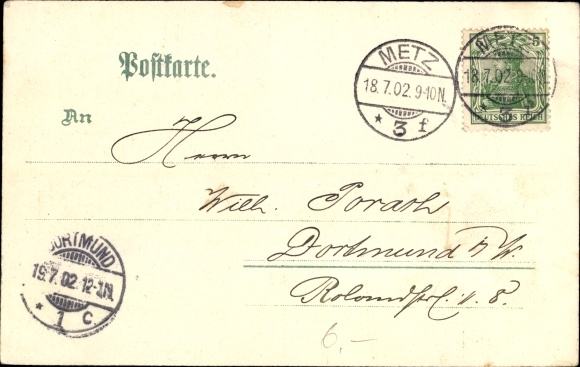 Postkarte.
METZ
18.7.02.9-10N.
* 3 f
METZ
18.7.02
3 f
5
DEUTSCHES REICH
An
Herrn
Wilh. Porath
Dortmund i/W.
Rolandstr. 
DORTMUND
19.7.02.12-1N.
* 1 c.
6.-